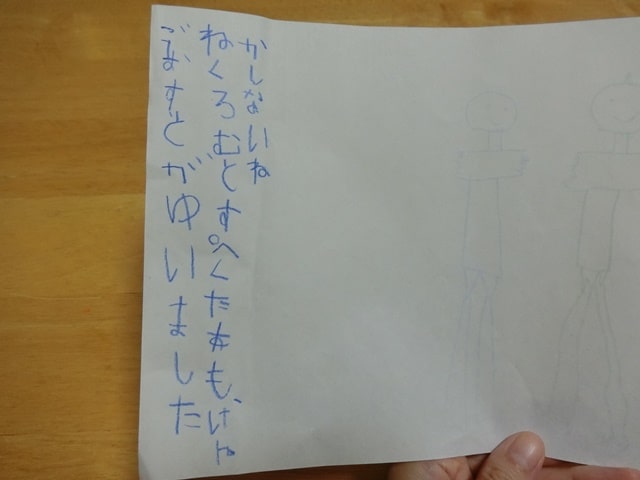 ごおすとがゆいました
ねくろむどすぺくたあもげや
かしないね